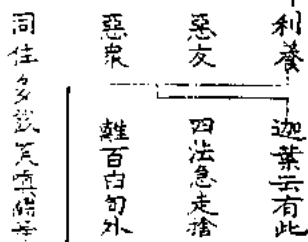 利養
迦葉云有此
惡友
四法急走捨
惡衆
離百由旬外
同住多戲笑嗔